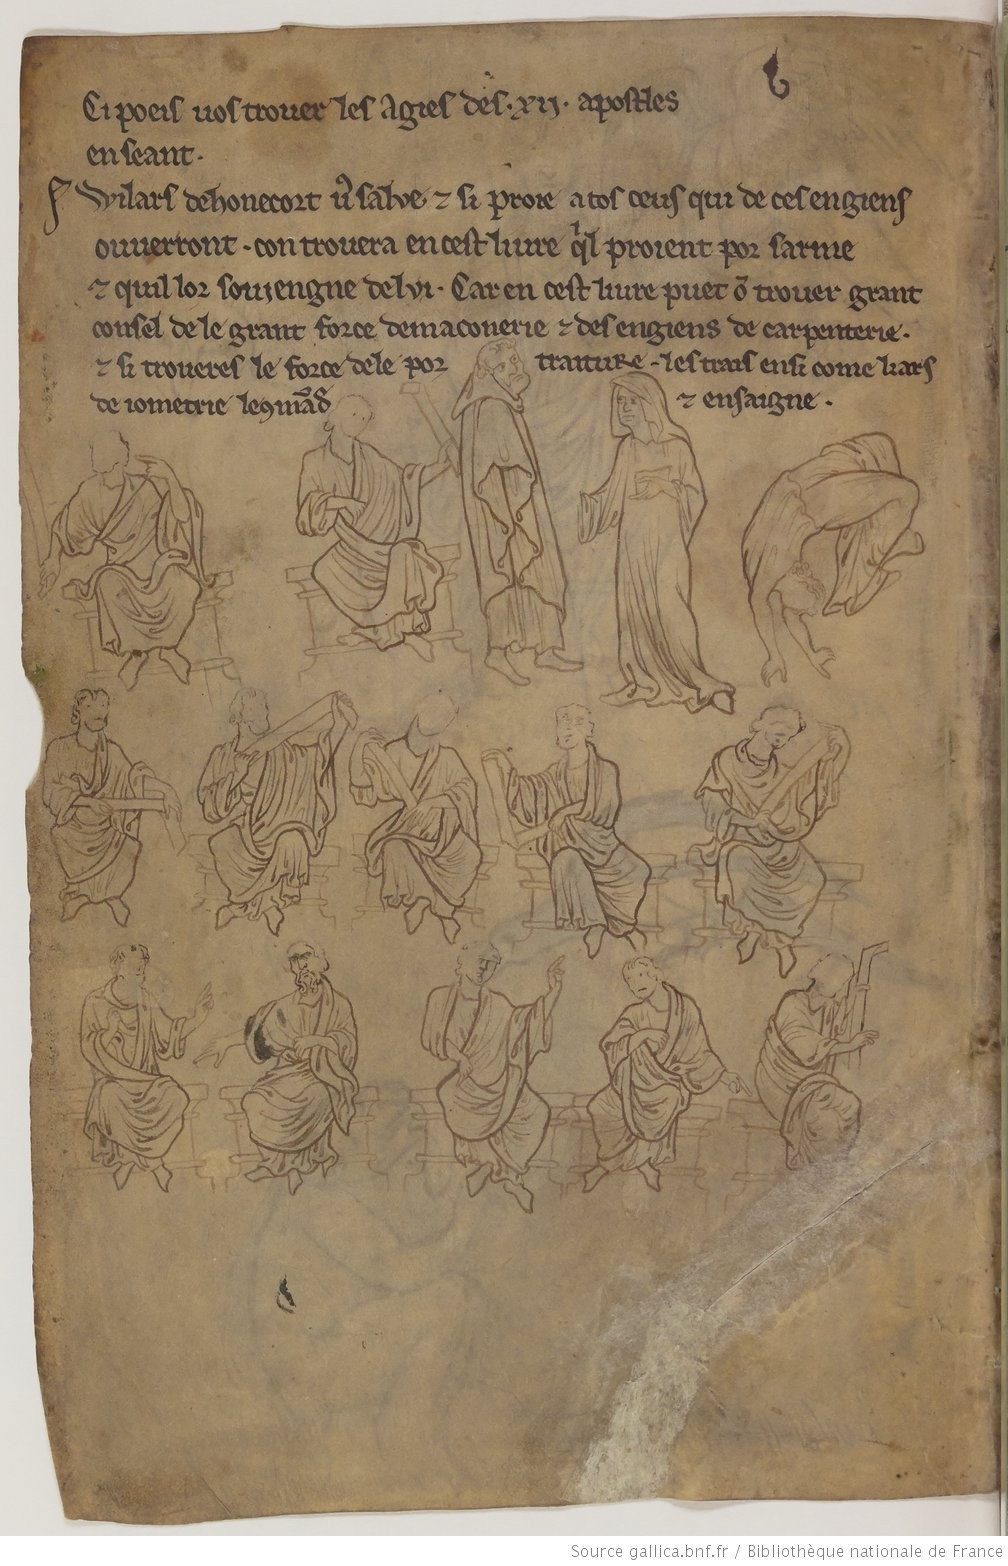 Ci poeis vos trover les agies des .xij. apostles
en seant.
Wilars dehonecort v̾ salve ⁊ si proie a tos ceus qui de ces engiens
ouverront . con trovera en cest livre q̾l proient por sarme
⁊ quil lor soviengne de lvi . Car en cest livre puet ō trover grant
consel de le grant force de maconerie ⁊ des engiens de carpenterie .
⁊ si troveres le force de le por traiture . les trais ensi come li ars
de iometrie le ⁊ ensaigne .
Source gallica.bnf.fr / Bibliothèque nationale de France